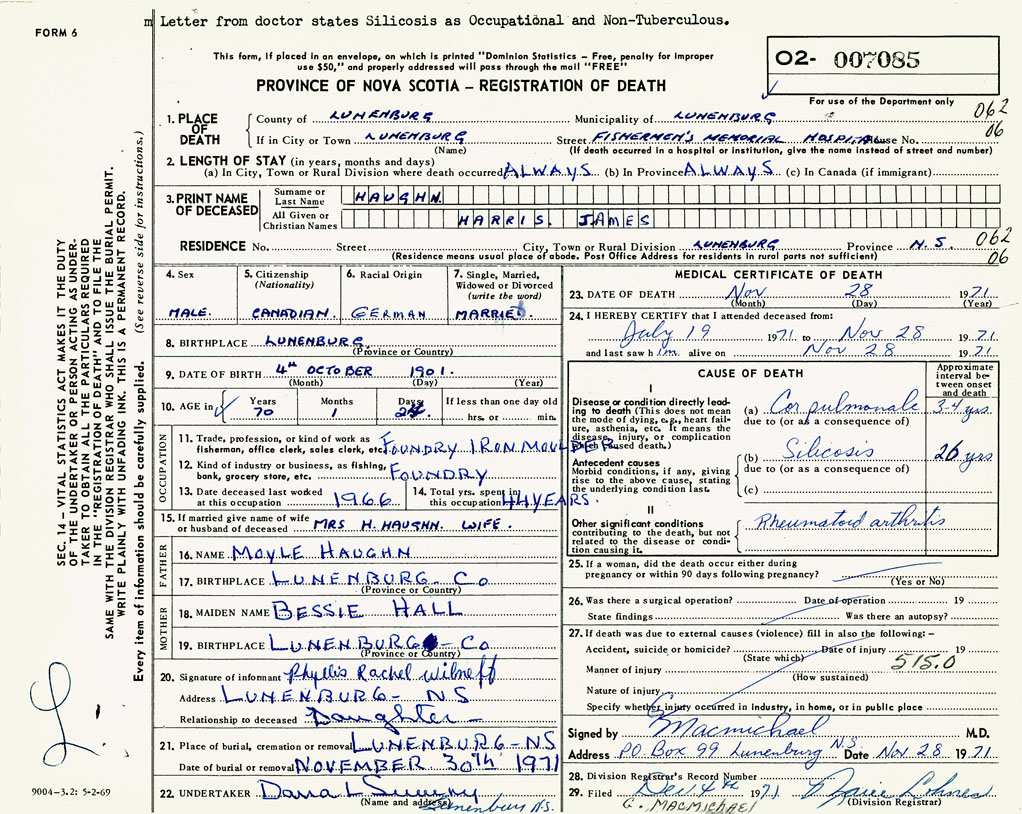 m Letter from doctor states Silicosis as Occupational and Non-Tuberculous.
FORM 6
This form, if placed in an envelope, on which is printed "Dominion Statistics – Free, penalty for improper
use $50," and properly addressed will pass through the mail "FREE"
O2- 007085
PROVINCE OF NOVA SCOTIA – REGISTRATION OF DEATH
For use of the Department only
1. PLACE OF DEATH
County of LUNENBURG Municipality of LUNENBURG 062
If in City or Town LUNENBURG Street FISHERMEN'S MEMORIAL HOSPITAL House No. 06
(Name) (If death occurred in a hospital or institution, give the name instead of street and number)
2. LENGTH OF STAY (in years, months and days)
(a) In City, Town or Rural Division where death occurred ALWAYS (b) In Province ALWAYS (c) In Canada (if immigrant)
3. PRINT NAME OF DECEASED
Surname or Last Name HAUGHN.
All Given or Christian Names HARRIS. JAMES
RESIDENCE No. Street City, Town or Rural Division LUNENBURG Province N.S. 062
(Residence means usual place of abode. Post Office Address for residents in rural parts not sufficient) 06
4. Sex
MALE.
5. Citizenship
(Nationality)
CANADIAN.
6. Racial Origin
GERMAN
7. Single, Married,
Widowed or Divorced
(write the word)
MARRIED
8. BIRTHPLACE LUNENBURG.
(Province or Country)
9. DATE OF BIRTH 4th OCTOBER 1901.
(Month) (Day) (Year)
10. AGE in Years 70 Months 1 Days 24 If less than one day old
hrs. or min.
OCCUPATION
11. Trade, profession, or kind of work as
fisherman, office clerk, sales clerk, etc. FOUNDRY IRON MOULDER
12. Kind of industry or business, as fishing,
bank, grocery store, etc. FOUNDRY
13. Date deceased last worked
at this occupation 1966
14. Total yrs. spent in
this occupation 44 YEARS.
15. If married give name of wife
or husband of deceased MRS H. HAUGHN. WIFE.
FATHER
16. NAME MOYLE HAUGHN
17. BIRTHPLACE LUNENBURG- Co
(Province or Country)
MOTHER
18. MAIDEN NAME BESSIE HALL
19. BIRTHPLACE LUNENBURG -Co
(Province or Country)
20. Signature of informant Phyllis Rachel Wilneff
Address LUNENBURG- NS
Relationship to deceased Daughter –
21. Place of burial, cremation or removal LUNENBURG-NS
Date of burial or removal NOVEMBER 30th 1971
22. UNDERTAKER Dana L
(Name and address) Lunenburg N.S.
MEDICAL CERTIFICATE OF DEATH
23. DATE OF DEATH Nov 28 1971
(Month) (Day) (Year)
24. I HEREBY CERTIFY that I attended deceased from:
July 19 1971 to Nov 28 1971
and last saw him alive on Nov 28 1971
CAUSE OF DEATH
Approximate
interval be-
tween onset
and death
I
Disease or condition directly lead-
ing to death (This does not mean
the mode of dying, e.g., heart fail-
ure, asthenia, etc. It means the
disease, injury, or complication
which caused death.)
(a) Cor pulmonale 3-4 yrs.
due to (or as a consequence of)
Antecedent causes
Morbid conditions, if any, giving
rise to the above cause, stating
the underlying condition last.
(b) Silicosis 26 yrs
due to (or as a consequence of)
(c)
II
Other significant conditions
contributing to the death, but not
related to the disease or condi-
tion causing it.
Rheumatoid arthritis
25. If a woman, did the death occur either during
pregnancy or within 90 days following pregnancy?
(Yes or No)
26. Was there a surgical operation? Date of operation 19
State findings Was there an autopsy?
27. If death was due to external causes (violence) fill in also the following: –
Accident, suicide or homicide? Date of injury 19
(State which) 515.0
Manner of injury
(How sustained)
Nature of injury
Specify whether injury occurred in industry, in home, or in public place
Signed by G Macmichael M.D.
Address P.O. Box 99 Lunenburg N.S. Date Nov 28 1971
28. Division Registrar's Record Number
29. Filed Dec 4th 1971
(Division Registrar)
G. MACMICHAEL
SEC. 14 – VITAL STATISTICS ACT MAKES IT THE DUTY
OF THE UNDERTAKER OR PERSON ACTING AS UNDER-
TAKER TO OBTAIN ALL THE PARTICULARS REQUIRED
IN THE "REGISTRATION OF DEATH" AND TO FILE THE
SAME WITH THE DIVISION REGISTRAR WHO SHALL ISSUE THE BURIAL PERMIT.
WRITE PLAINLY WITH UNFADING INK. THIS IS A PERMANENT RECORD.
Every item of information should be carefully supplied. (See reverse side for instructions.)
9004–3.2: 5-2-69